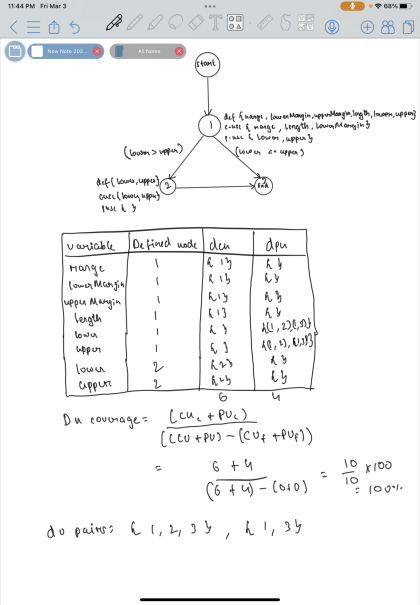 11:44 PM Fri Mar 3
68%
New Note 202...
All Notes
start
1
def {range, lowerMargin, upperMargin, length, lower, upper}
c-use {range, length, lowerMargin}
p-use {lower, upper}
(lower > upper)
(lower <= upper)
def {lower, upper}
cuse {lower, upper}
puse { }
2
End
variable Defined node dcu dpu
range 1 {1} { }
lowerMargin 1 {1} { }
upper Margin 1 {1} { }
length 1 {1} { }
lower 1 { } {(1, 2), (1, 3)}
upper 1 { } {(1, 2), (1, 3)}
lower 2 {2} { }
upper 2 {2} { }
6 4
Du coverage = (CUc + PUc)
((CU + PU) - (CUf + PUf))
= 6 + 4
(6 + 4) - (0+0)
= 10
10 × 100
= 100%
du pairs: { 1, 2, 3 } , { 1, 3 }